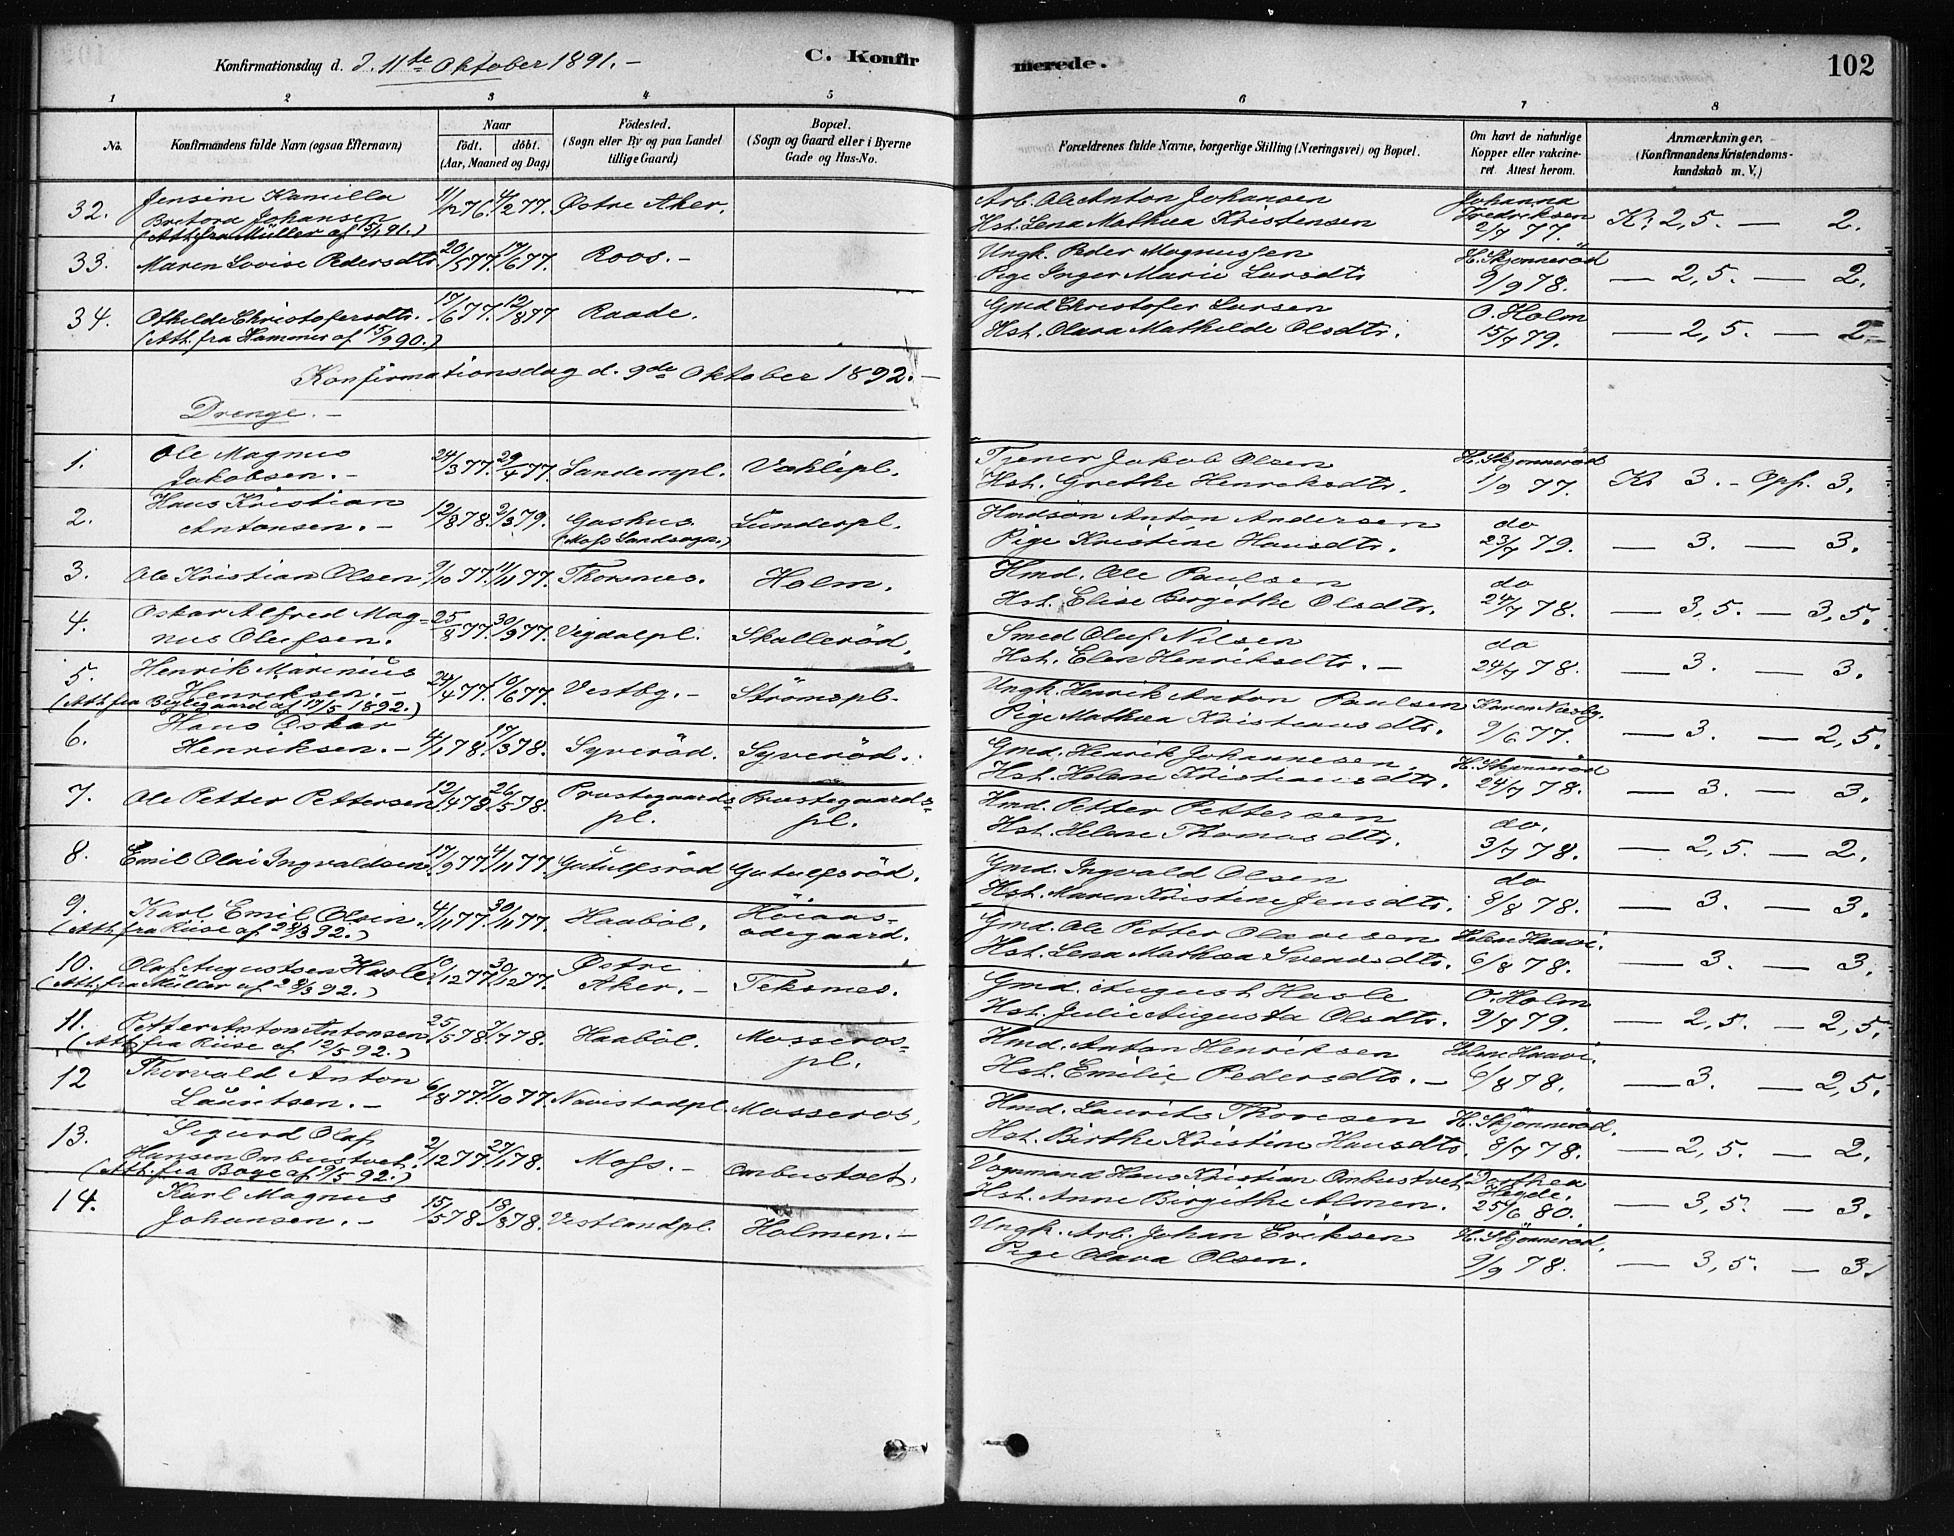 Konfirmationsdag d. d. 11te Oktober 1891. –
C. Konfir
merede.
102
1 2 3 4 5 6 7 8
No.
Konfirmandens fulde Navn (ogsaa Efternavn)
Naar
födt. döbt.
(Aar, Maaned og Dag)
Födested.
(Sogn eller By og paa Landet
tillige Gaard)
Bopæl.
(Sogn og Gaard eller i Byerne
Gade og Hus-No.
Forældrenes fulde Navne, borgerlige Stilling (Næringsvei) og Bopæl.
Om havt de naturlige
Kopper eller vakcine-
ret. Attest herom.
Anmærkninger,
(Konfirmandens Kristendoms-
kundskab m. V.)
32. Jensine Kamilla
Bretora Johansen
(Att. fra Müller af 15/1 91.)
11/12 76. 4/2 77. Østre Aker.
Arb. Ole Anton Johansen
Hst. Lena Mathea Kristensen
Johanna
Fredriksen
2/7 77.
Kr. 2,5. — 2.
33. Maren Lovise Pedersdtr. 20/5 77. 17/6 77. Roos. –
Ungk. Peder Magnussen
Pige Inger Marie Larsdtr
H. Skjønneröd
9/9 78.
— 2,5. — 2.
34. Othilde Christofersdtr. 17/6 77. 12/8 77 Raade.
(Att. fra Hammer af 15/9 90.)
Gmd. Christofer Larsen
Hst. Olava Mathilde Olsdtr.
O. Holm
15/7 79.
— 2,5. — 2.
Konfirmationsdag d. 9de Oktober 1892. –
Drenge. –
1. Ole Magnus
Jakobsen. –
24/3 77. 29/4 77. Sandempl. Vahlépl.
Tjener Jakob Olsen
Hst. Grethe Henriksdtr.
H. Skjønneröd
1/9 77.
Kr 3. – Opf. 3.
2. Hans Kristian
Antonsen. –
12/8 78. 2/3 79. Gashus
(Moss Landsogn.)
Sunderpl.
Hmdsön Anton Andersen
Pige Kristine Hansdtr.
do
23/7 79.
— 3. — 3.
3. Ole Kristian Olsen 9/10 77. 11/11 77. Thorsnes. Holm.
Hmd. Ole Paulsen
Hst. Elise Bergithe Olsdtr.
do
24/7 78.
— 3,5. — 3,5.
4. Oskar Alfred Mag-
nus Olufsen.
25/8 77. 30/9 77. Vegdalpl. Skalleröd.
Smed Oluf Nilsen
Hst. Elen Henriksdtr. –
do
24/7 78.
— 3. — 3.
5. Henrik Marinius
Henriksen. –
(Att. fra Beglegaard af 17/5 1892.)
24/4 77. 10/6 77. Vestbg. – Strömspl.
Ungk. Henrik Anton Paulsen
Pige Mathea Kristiansdtr.
Karen Næsby.
9/6 77.
— 3. — 2,5.
6. Hans Oskar
Henriksen. –
4/1 78. 17/3 78. Syveröd. Syveröd.
Gmd. Henrik Johannesen.
Hst. Helene Kristiansdtr.
H. Skjønneröd
24/7 78.
— 3. — 3.
7. Ole Petter Pettersen 12/4 78. 26/5 78. Prestegaards-
pl.
Prestegaards-
pl.
Hmd. Petter Pettersen
Hst. Helene Thomasdtr.
do.
3/7 78.
— 2,5. — 2.
8. Emil Olai Ingvaldsen. 17/9 77. 4/11 77. Gutulfsröd Gutulfsröd.
Gmd. Ingvald Olsen
Hst. Maren Kristine Jensdtr.
do
8/8 78.
— 3. — 3.
9. Karl Emil Olsen.
(Att. fra Riise af 28/3 92.)
4/11 77. 30/11 77. Haaböl. Höiaas-
ödegaard.
Gmd. Ole Petter Olavesen
Hst. Lena Mathea Svendsdtr.
Helene Haavi.
6/8 78.
— 3. — 3.
10. Olaf Augustsen Hasle
(Att. fra Müller af 28/3 92.)
10/12 77. 30/12 77. Østre
Aker. –
Teksnes.
Gmd. August Hasle
Hst. Julie Augusta Olsdtr.
O. Holm
9/7 79.
— 2,5. — 2,5.
11. Petter Anton Antonsen
(Att. fra Riise af 12/5 92.)
25/5 78. 7/7 78. Haaböl. Mosseros-
pl.
Hmd. Anton Henriksen
Hst. Emilie Pedersdtr. –
Helene Haavi.
6/8 78.
— 3. — 2,5.
12 Thorvald Anton
Lauritsen. –
6/8 77. 7/10 77. Navestadpl. Mosseros.
Hmd. Laurits Thoresen
Hst. Birthe Kristine Hansdtr.
H. Skjønneröd.
8/7 78.
— 2,5. — 2.
13. Sigurd Olaf
Hansen Ombustvet.
(Att. fra Boye af 9/5 92.)
2/12 77. 27/1 78. Moss. – Ombustvet.
Vognmand Hans Kristian Ombustvet
Hst. Anne Birgithe Almen.
Dorthea
Hegde.
25/6 80.
— 3,5. — 3.
14. Karl Magnus
Johansen. –
15/5 78. 18/8 78. Vestlandpl. Holmen. –
Ungk. Arb. Johan Eriksen
Pige Olava Olsen.
H. Skjønneröd.
9/9 78.
— 3,5. — 3.